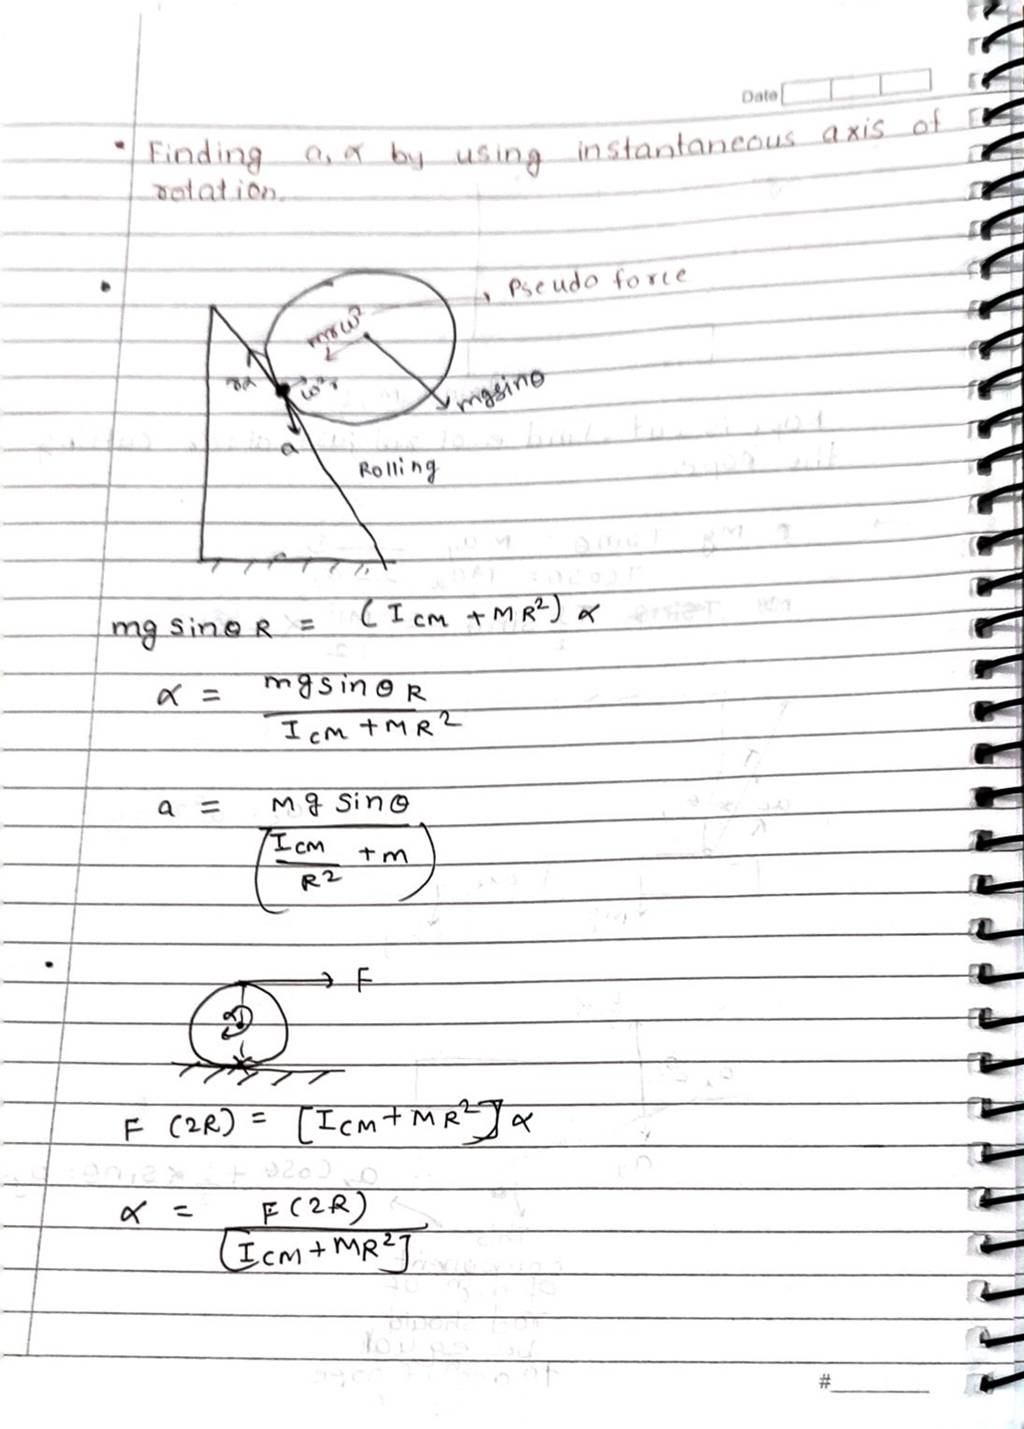 Date
• Finding a, α by using instantaneous axis of
rotation.
, Pseudo force
mrω²
rα
ω²r
mgsinθ
a
Rolling
mg sinθ R = (I CM + MR²) α
α = mgsinθ R / I CM + MR²
a = Mg sinθ / (I CM / R² + m)
F
α
F (2R) = [I CM + MR²] α
α = F (2R) / [I CM + MR²]
#